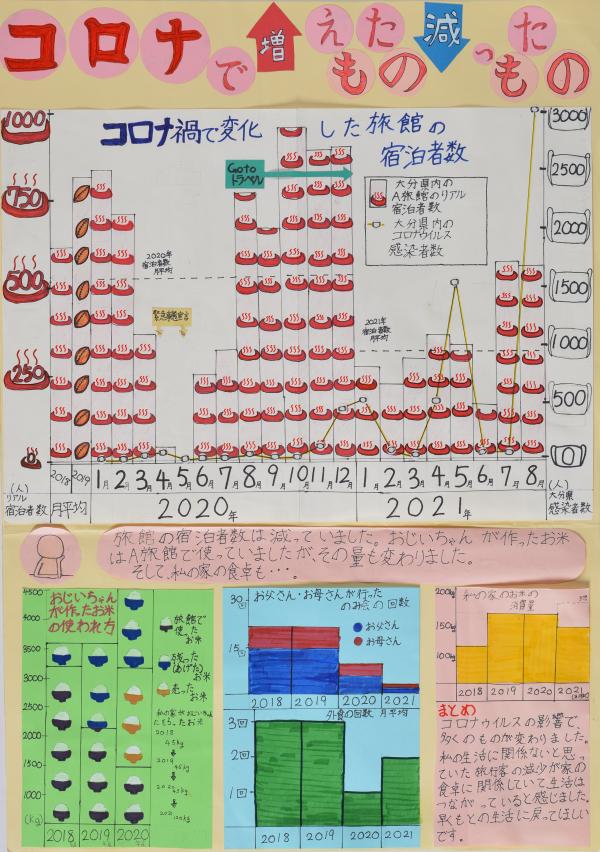 コロナで増えたもの減ったもの
コロナ禍で変化した旅館の
宿泊者数
1000
750
500
250
(人)
リアル
宿泊者数
3000
2500
2000
1500
1000
500
(人)
大分県
感染者数
Goto
トラベル
大分県内の
A旅館のリアル
宿泊者数
大分県内の
コロナウイルス
感染者数
2020年
宿泊者数
月平均
緊急事態宣言
2021年
宿泊者数
月平均
2018 2019 1月 2月 3月 4月 5月 6月 7月 8月 9月 10月 11月 12月 1月 2月 3月 4月 5月 6月 7月 8月
月平均 2020年 2021年
旅館の宿泊者数は減っていました。おじいちゃんが作ったお米
はA旅館で使っていましたが、その量も変わりました。
そして、私の家の食卓も・・・。
おじいちゃん
が作ったお米
の使われ方
4500
4000
3500
3000
2500
2000
1500
1000
(Kg)
2018年 2019年 2020年
旅館で
使った
お米
(あげた)
お米
売った
お米
2018
45kg
2019
45kg
45kg
2021 120kg
お父さん・お母さんが行った
のみ会の回数
30回
15回
お父さん
お母さん
2018 2019 2020 2021
外食の回数 月平均
3回
2回
1回
2018 2019 2020 2021
私の家のお米の
消費量
200kg
150kg
100kg
2018 2019 2020 2021
まとめ
コロナウイルスの影響で、
多くのものが変わりました。
私の生活に関係ないと思っ
ていた旅行客の減少が家の
食卓に関係していて生活は
つながっていると感じました。
早くもとの生活に戻ってほしい
です。